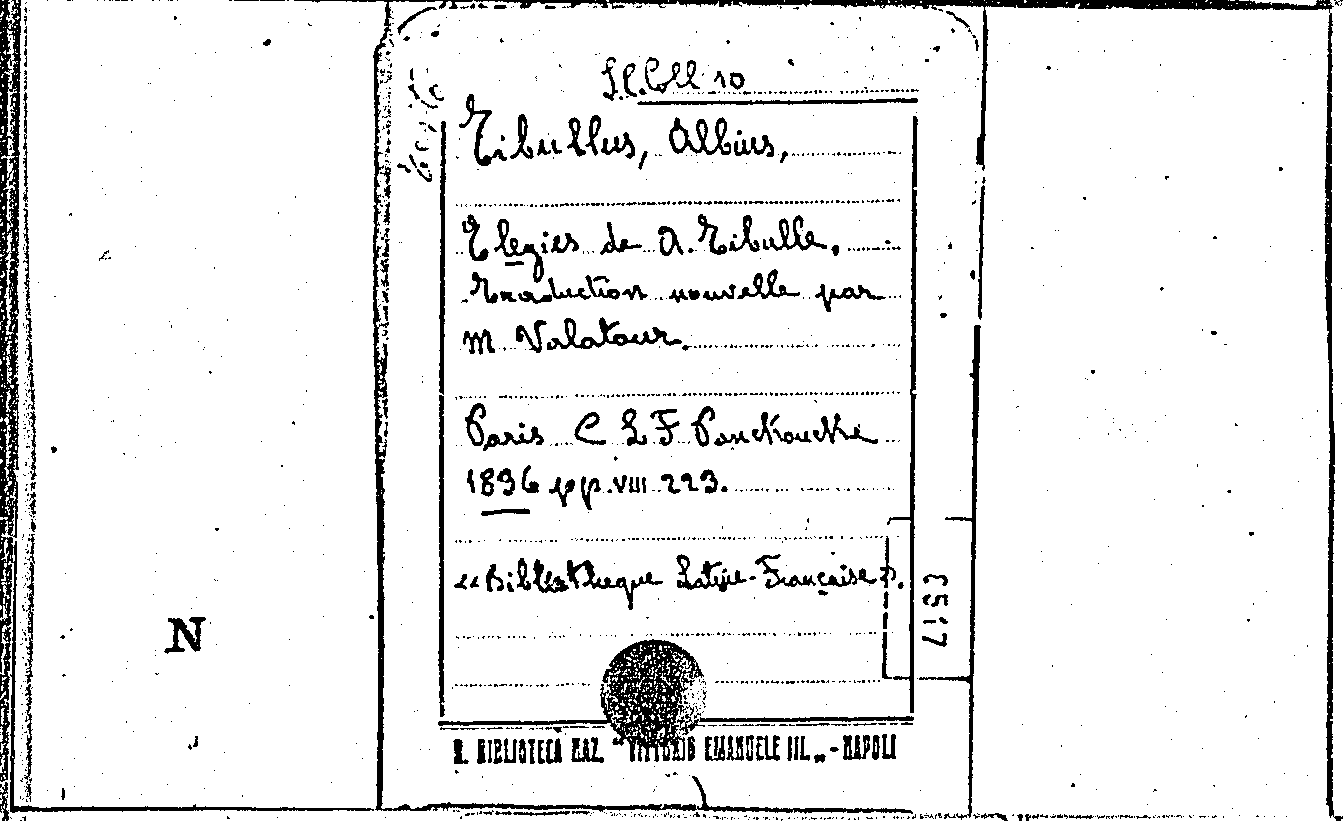 S.C. Coll 10
Tibullus, Albius,
Elegies de A. Tibulle.
Traduction nouvelle par
M. Valatour.
Paris C L F Panckoucke
1836 pp. VIII 223.
«Bibliothèque Latine-Française».
R. BIBLIOTECA NAZ. "VITTORIO EMANUELE III." - NAPOLI
N